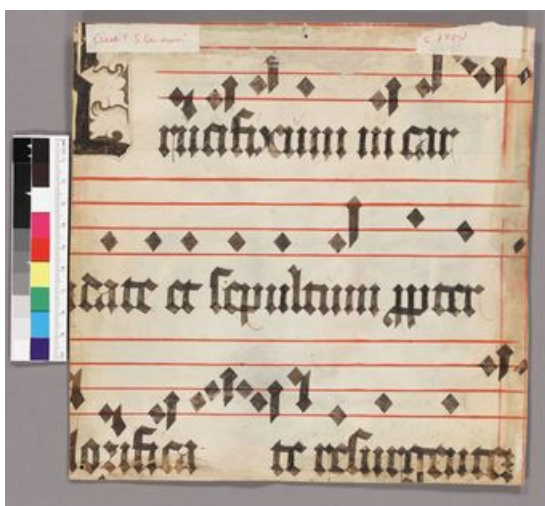 rucifixum in car
date et sepultum ppter
lorifica te resurgente